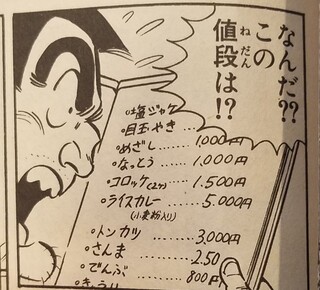 なんだ??
この
値段は!?
ねだん
・塩ジャケ
・目玉やき
・めざし……1,000円
・なっとう……1,000円
・コロッケ(2ケ)…1,500円
・ライスカレー……5,000円
(小麦粉入り)
・トンカツ……3,000円
・さんま……2,50
・でんぶ……800円